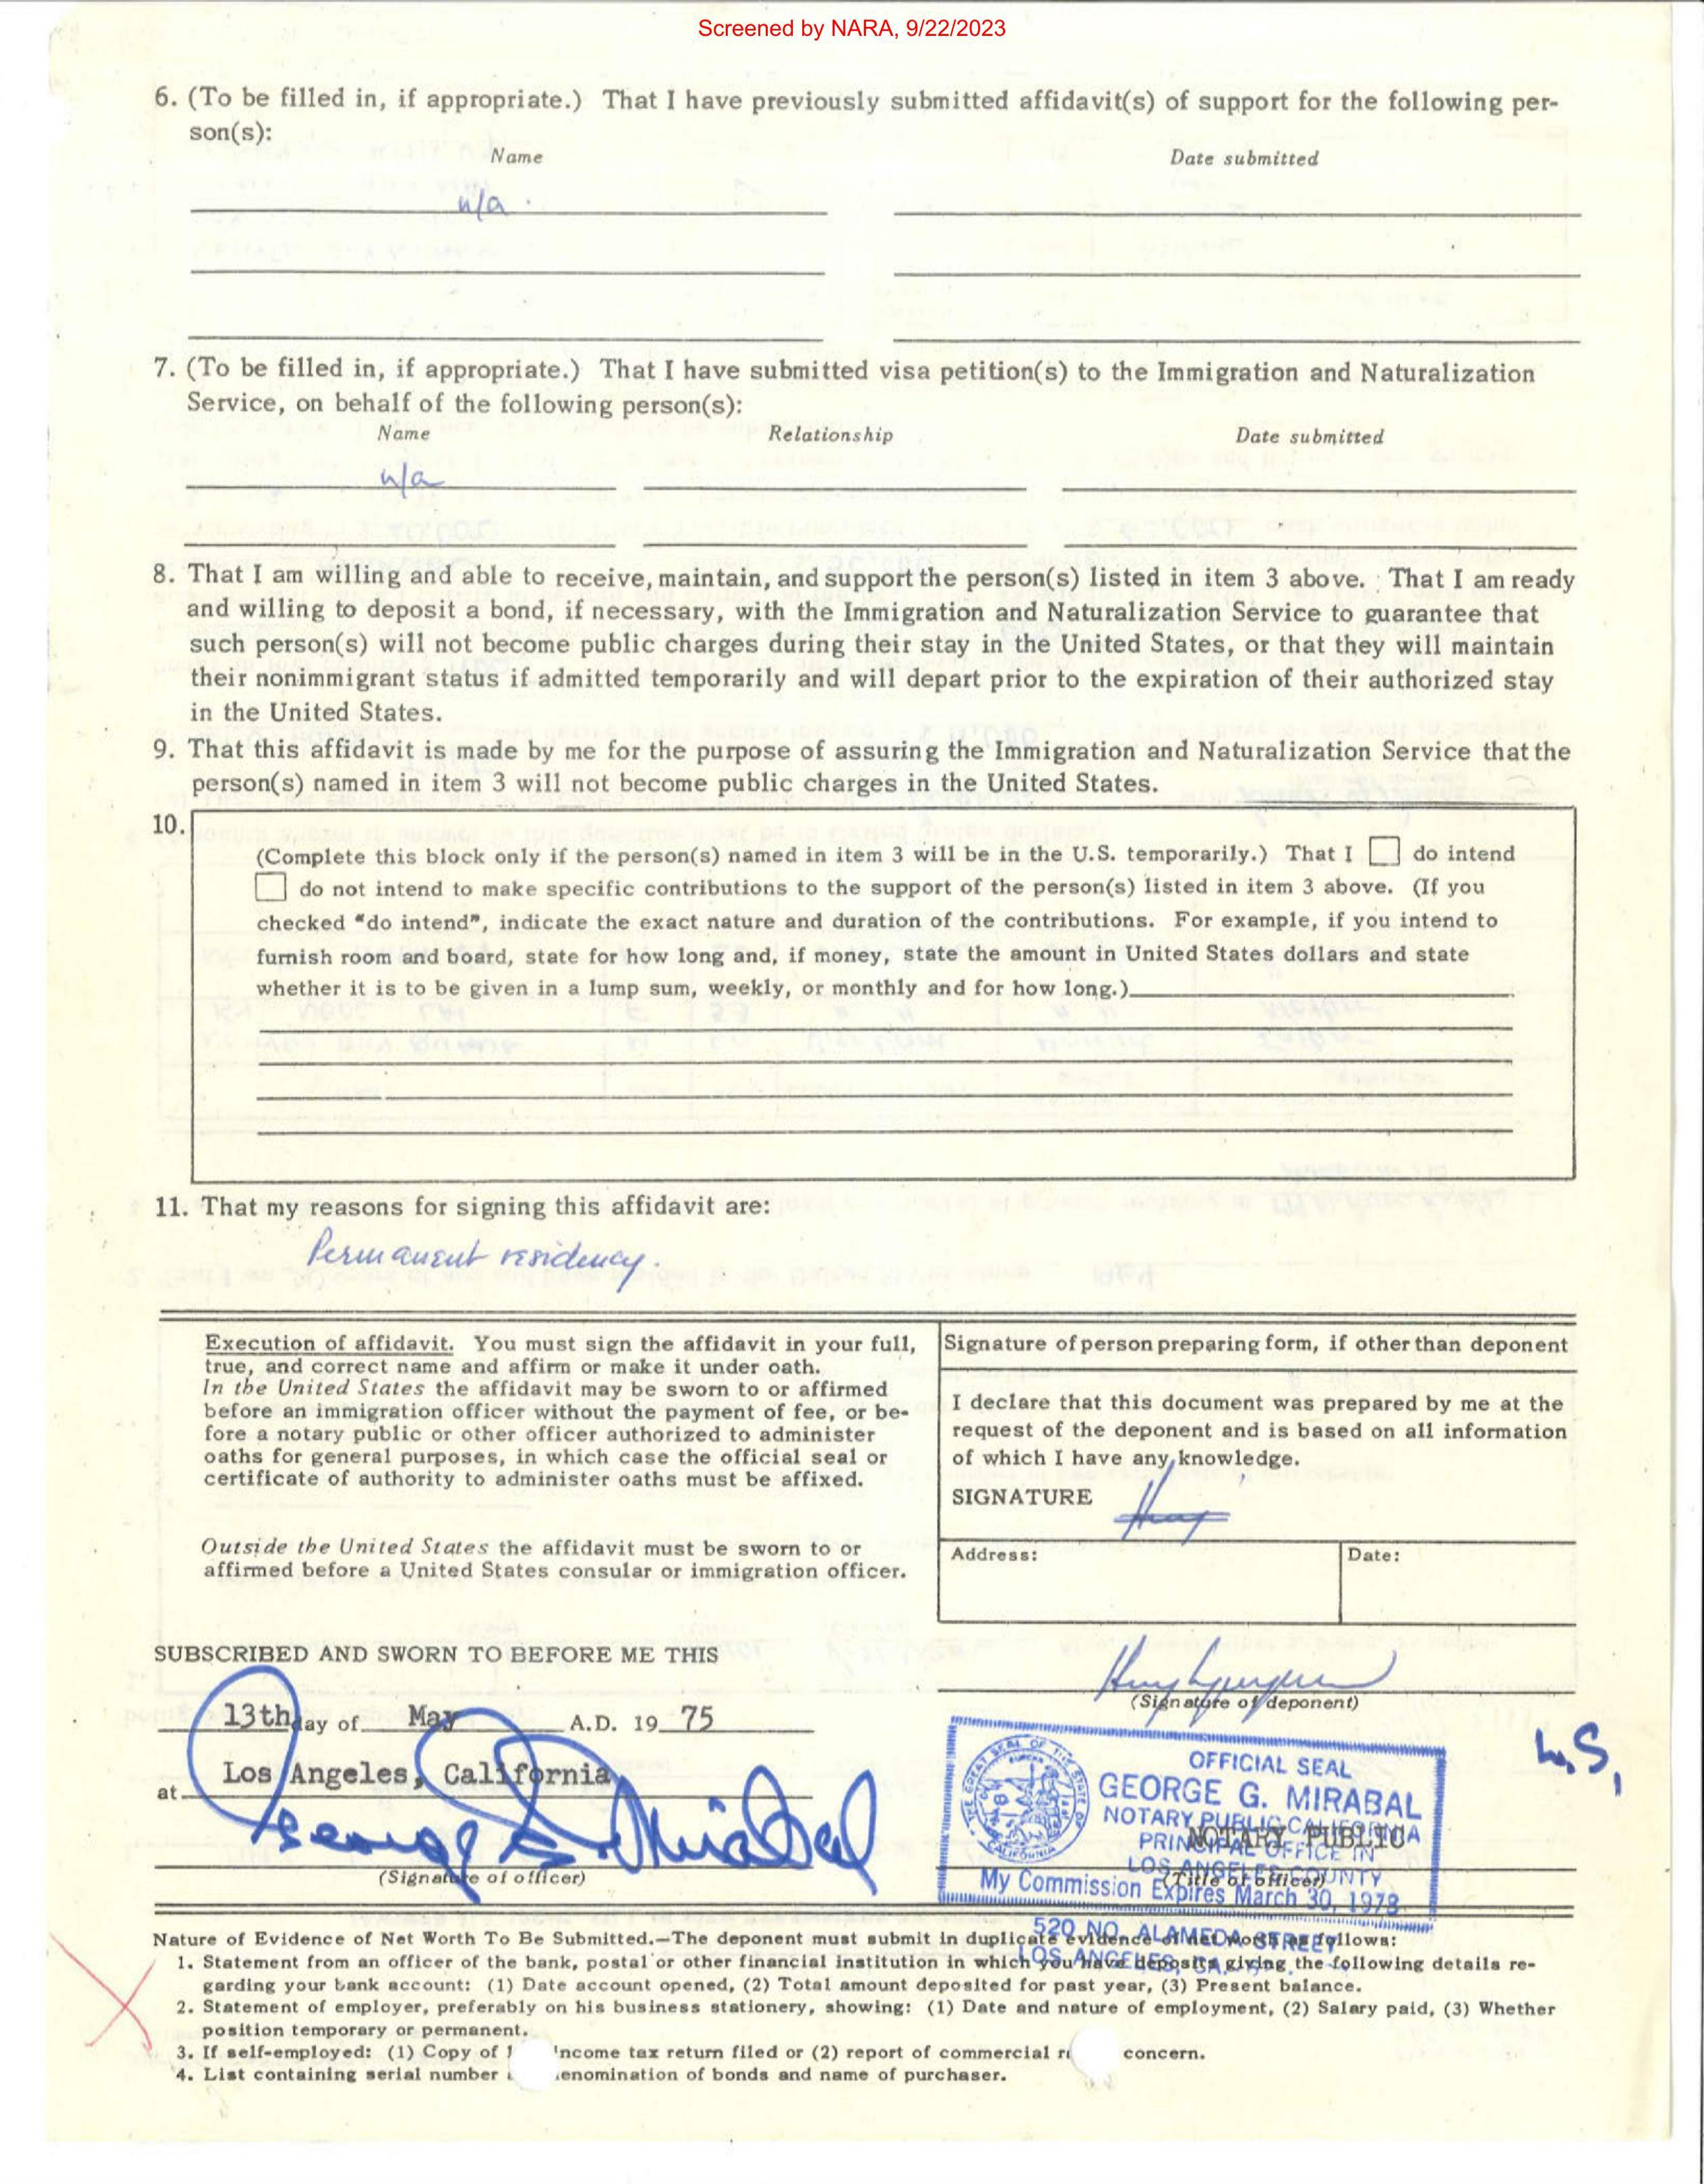 Screened by NARA, 9/22/2023
6. (To be filled in, if appropriate.) That I have previously submitted affidavit(s) of support for the following per-
son(s):
Name Date submitted
n/a
7. (To be filled in, if appropriate.) That I have submitted visa petition(s) to the Immigration and Naturalization
Service, on behalf of the following person(s):
Name Relationship Date submitted
n/a
8. That I am willing and able to receive, maintain, and support the person(s) listed in item 3 above. That I am ready
and willing to deposit a bond, if necessary, with the Immigration and Naturalization Service to guarantee that
such person(s) will not become public charges during their stay in the United States, or that they will maintain
their nonimmigrant status if admitted temporarily and will depart prior to the expiration of their authorized stay
in the United States.
9. That this affidavit is made by me for the purpose of assuring the Immigration and Naturalization Service that the
person(s) named in item 3 will not become public charges in the United States.
10.
(Complete this block only if the person(s) named in item 3 will be in the U.S. temporarily.) That I do intend
do not intend to make specific contributions to the support of the person(s) listed in item 3 above. (If you
checked "do intend", indicate the exact nature and duration of the contributions. For example, if you intend to
furnish room and board, state for how long and, if money, state the amount in United States dollars and state
whether it is to be given in a lump sum, weekly, or monthly and for how long.)
11. That my reasons for signing this affidavit are:
Permanent residency.
Execution of affidavit. You must sign the affidavit in your full,
true, and correct name and affirm or make it under oath.
In the United States the affidavit may be sworn to or affirmed
before an immigration officer without the payment of fee, or be-
fore a notary public or other officer authorized to administer
oaths for general purposes, in which case the official seal or
certificate of authority to administer oaths must be affixed.
Outside the United States the affidavit must be sworn to or
affirmed before a United States consular or immigration officer.
Signature of person preparing form, if other than deponent
I declare that this document was prepared by me at the
request of the deponent and is based on all information
of which I have any knowledge.
SIGNATURE
Address: Date:
SUBSCRIBED AND SWORN TO BEFORE ME THIS
13th day of May A.D. 19 75
at Los Angeles, California
George G. Mirabal
(Signature of officer)
(Signature of deponent)
L.S,
OFFICIAL SEAL
GEORGE G. MIRABAL
NOTARY PUBLIC CALIFORNIA
PRINCIPAL OFFICE IN
LOS ANGELES COUNTY
My Commission Expires March 30, 1978
NOTARY PUBLIC
(Title of officer)
520 NO. ALAMEDA STREET
LOS ANGELES, CA.
Nature of Evidence of Net Worth To Be Submitted.—The deponent must submit in duplicate evidence of net worth as follows:
1. Statement from an officer of the bank, postal or other financial institution in which you have deposits giving the following details re-
garding your bank account: (1) Date account opened, (2) Total amount deposited for past year, (3) Present balance.
2. Statement of employer, preferably on his business stationery, showing: (1) Date and nature of employment, (2) Salary paid, (3) Whether
position temporary or permanent.
3. If self-employed: (1) Copy of income tax return filed or (2) report of commercial concern.
4. List containing serial number denomination of bonds and name of purchaser.